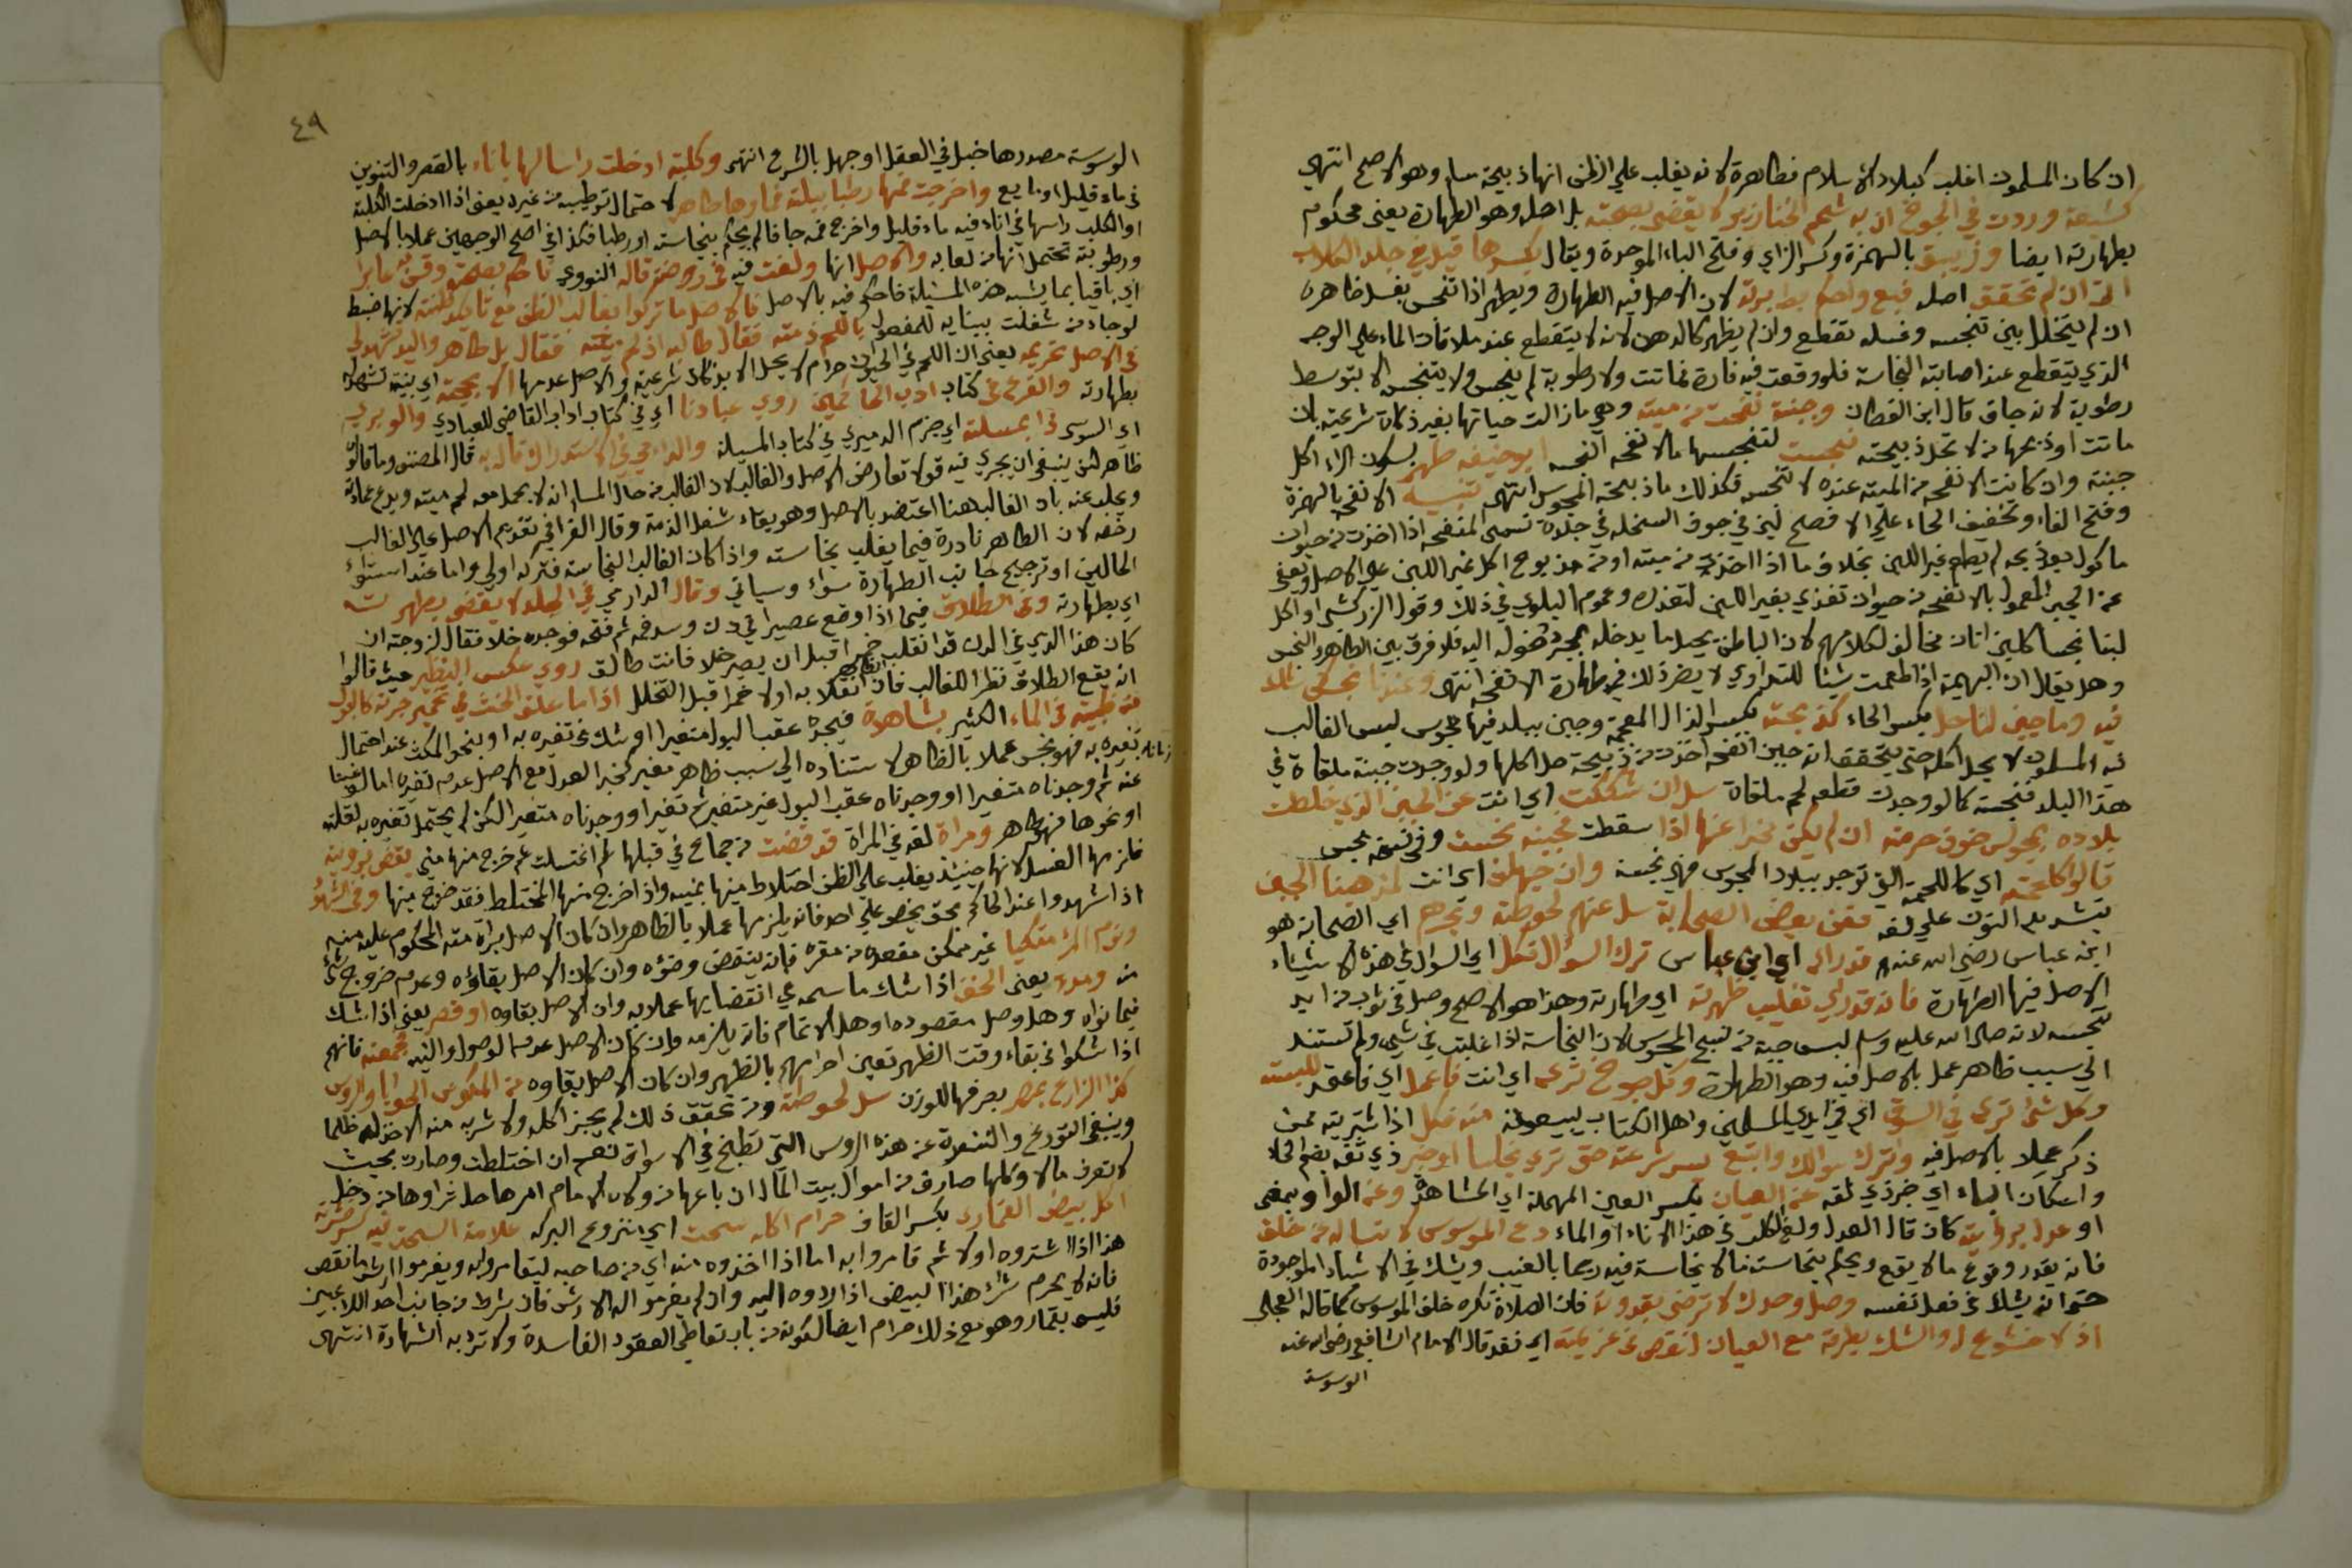 ان كان المسلمون اغلب كبلاد الاسلام فطاهرة لانه يغلب علي الظن انها ذبيحة مسلم وهو الاصح انتهي
كشنعة وردت في الجوخ ان به شحم الخنازير لا يقضي بصحته بل اصله وهو الطهارة يعني محكوم
بطهارته ايضا وزيبق بالهمزة وكسر الزاي وفتح الباء الموحدة ويقال بكسرها قيل في جلد الكلاب
ان لم تحقق اصله فبع واحكم بطهارته لان الاصل فيه الطهارة ويطهر اذا تنجس بغسل ظاهره
ان لم يتخلل بين تنجسه وغسله تقطع والا لم يطهر كالدهن لانه لا يتقطع عند ملاقات الماء علي الوجه
الذي يتقطع عند اصابته النجاسة فلو وقعت فيه فارة فماتت ولا رطوبة لم ينجس ولا يتنجس الا بتوسط
رطوبة لانه جاف قال ابن القطان وجبنة نفحت من ميتة وهي ما زالت حياتها بغير ذكاة شرعية بان
ماتت او ذبحها من لا تحل ذبيحته نجست لتنجسها بالانفحة النجسة ابو حنيفة طهر بسكون الراء اكل
جبنة وان كانت الانفحة من الميتة عنده لا تنجس فكذلك ما ذبحه المجوس انتهي تنبيه الانفحة بالهمزة
وفتح الفاء وتخفيف الحاء علي الافصح لبن في جوف السخلة في جلدة تسمي المنفحة اذا اخذت من حيوان
ماكول بعد ذبحه لم يطعم غير اللبن بخلاف ما اذا اخذت من ميتة او من مذبوح اكل غير اللبن علي الاصل ويعفي
عن الجبن المعمول بالانفحة من حيوان تغذي بغير اللبن لتعذره وعموم البلوي في ذلك وقول الزركشي او اكل
لبنا نجسا كلبن اتان مخالف لكلامهم لان الباطن يحيل ما يدخله بمجرد وصوله اليه فلا فرق بين الطاهر والنجس
وهل يقال ان البهيمة اذا طعمت شيئا للتداوي لا يضر ذلك في طهارة الانفحة انتهي
فيه وما جبن لنا حل بكسر الحاء كذبيحة بكسر الذال المعجمة وجبن ببلد فيها مجوس ليس الغالب
فيه المسلمون لا يحل اكله حتي يتحقق انه جبن انفحة اخذت من ذبيحة حل اكلها ولو وجدت جبنة ملقاة في
هذا البلد فنجسة كما لو وجدت قطعة لحم ملقاة سل ان شككت اي انت عن الجبن الذي خلطت
بلاده بمجوس خوف حرمته ان لم يكن مخبرا عنها اذا سقطت جبنة نجست وفي نسخة نجس
قالوا كلحمة اي كاللحمة التي توجد ببلاد المجوس فهي نجسة وان جهلت اي انت لمذهبنا الجبن
بتشديد النون علي لغة فعن بعض الصحابة سل عنهم لحوطة وبحرهم اي الصحابة هو
ابن عباس رضي الله عنهم قد رآه اي ابن عباس ترك السؤال فكل اي السؤال في هذه الاشياء
الاصل فيها الطهارة فانه قد راي تغليب طهرته اي طهارته وهذا هو الاصح وصل في ثوب من ايد
تنجسه لانه صلي الله عليه وسلم لبس جبة من نسج المجوس لان النجاسة اذا غلبت في شئ ولم تستند
الي سبب ظاهر عمل بالاصل فيه وهو الطهارة وكل جوخ تري اي انت فاعمل اي فاعتمد للبسه
وكل شئ تري في السوق اي في ايدي المسلمين واهل الكتاب يبيعونه منه فكل اذا شتريته ممن
ذكر عملا بالاصل فيه واترك سوالك وابتع بيسر شرعته حتي تري نجاسا او خبر ذي ثقة بضم الخاء
واسكان الباء اي خبر ذي ثقة عن العيان بكسر العين المهملة اي المشاهدة وعن الواو بمعني
او عدل برؤيته كان قال العدل ولغ الكلب في هذا الاناء او الماء دع الموسوس لا تساله من خلف
فانه يقدر وقوع ما لا يقع ويحكم بنجاسة ما لا نجاسة فيه رجما بالغيب ويشك في الاشياء الموجودة
حتي انه يشك في فعل نفسه وصل وحدك لا ترضي بقدوته فان الصلاة تكره خلف الموسوس كما قاله العجلي
اذ لا خشوع له والشك يطرقه مع العيان لنقص في غريزته اي فقد قال الامام الشافعي رضي الله عنه
الوسوسة
٤٩
الوسوسة مصدرها خبل في العقل او جهل بالشرع انتهي وكلبة ادخلت راسا لها باناء بالقصر والتنوين
في ماء قليل او مايع واخرجت فمها رطبا ببلته فماؤها طاهر لاحتمال ترطيبه من غيره يعني اذا ادخلت الكلبة
او الكلب راسها في اناء فيه ماء قليل واخرج فمه جافا لم يحكم بنجاسته او رطبا فكذا في اصح الوجهين عملا بالاصل
ورطوبته تحتمل انها من لعابه والاصل انها ولغت فيه في روضة قاله النووي فاحكم بصحته وقس به غابرا
اي باقيا بما يشبه هذه المسئلة فاحكم فيه بالاصل فالاصل ما تركوا بغالب الظن مع تاكد ظنته لانها ضبط
لو جاء من شغلت ببنايه للمفعول باللحم ذمته فقال طالبه اذ لم ميتة فقال بل طاهر واليد شهد لي
في الاصل تحريمه يعني ان اللحم في الحيوان حرام لا يحل الا بذكاة شرعية والاصل عدمها الا بحجته اي بينة تشهد له
بطهارته والفرع في كتاب ادب الحاكمين روي عبادنا اي في كتاب اداب القاضي للعبادي والو
اي السوي في المسئلة اي جزم الدميري في كتاب المسيلة والدارمي في الاستدراك قال به قال المصنف وما قالوه
ظاهر لكن ينبغي ان يجري فيه قولا تعارض الاصل والغالب لان الغالب من حال المسلم انه لا يحمل معه لحم ميتة
ويجاب عنه بان الغالب هنا اعتضد بالاصل وهو بقاء شغل الذمة وقال القرافي تقديم الاصل علي الغالب
رخصة لان الطاهر نادرة فيما يغلب نجاسته واذا كان الغالب النجاسة فتركه اولي واما عند استواء
الحالين او ترجيح جانب الطهارة سواء وسياتي وقال الدارمي في الجلد لا يقضي بطهرته
اي بطهارته وفي الطلاق فيما اذا وقع عصيرا في دن وسد فمه ثم فتحه فوجده خلا فقال لزوجته ان
كان هذا الذي في الدن قد انقلب خمرا قبل ان يصير خلا فانت طالق روي عكس النظير حيث قالوا
انه يقع الطلاق نظرا للغالب فان انقلابه اولا خمرا قبل التخلل اذا ما علق الحنث في تخمير جرته كالبول
من ظبية في الماء الكثير بشاهدة فيجده عقب البول متغيرا او شك في تغيره به او بنحو المكث عند احتمال
تغيره به فهو نجس عملا بالظاهر لاستناده الي سبب ظاهر مغير كخبر العدل مع الاصل عدم تغيره اما لو غبنا
زمانا
عنه ثم وجدناه متغيرا او وجدناه عقب البول غير متغير ثم تغير او وجدناه متغيرا لكن لم يحتمل تغيره به لقلته
او نحوها فهو طاهر ومراة لغة في المراة قد قضت من جماع في قبلها ثم اغتسلت ثم خرج منها مني يقضي برؤيته
فلزمها الغسل لانها حينئذ يغلب علي الظن اختلاط منيها بمنيه واذا خرج منها المختلط فقد خرج منها وفي الشهود
اذا شهدوا عند الحاكم بحق يخص علي احد فانه يلزمها عملا بالظاهر وان كان الاصل براة ذمة المحكوم عليه منه
ونوم المرء متكيا غير ممكن مقعده من مقره فانه ينتقض وضؤه وان كان الاصل بقاؤه وعدم خروج شئ
منه ومدة يعني الخف اذا شك ماسحه في انقضايها عملا به وان الاصل بقاوه او قصر يعني اذا شك
فيما نواه وهل وصل مقصوده او هل الاتمام فانه يلزمه وان كان الاصل عدم الوصول والنية بجمعته فانهم
اذا شكوا في بقاء وقت الظهر تعين احرامهم بالظهر وان كان الاصل بقاوه من المكوس الجوايا والروس
كذا الزارع بمصر بصرفها للوزن سل لحوطته ومن تحقق ذلك لم يجز اكله ولا شربه منه الاخذ له ظلما
وينبغي التورع والتنعدة عن هذه الروس التي تطبخ في الاسواق نعم ان اختلطت وصارت بحيث
لا تعرف ملاكها صارت من اموال بيت المال ان باعها من ولاه الامام امرها حل شراوها من دخل
اكل بيض القمار بكسر القاف حرام اكله سحت اي منزوع البركة علامة السحت فيه كسرته
هذا اذا اشتروه اولا ثم قامروا به اما اذا اخذوه منه اي من صاحبه ليتقامروا به ويغرموا ارش ما نقص
فانه لا يحرم شراء هذا البيض اذا ردوه اليه وان لم يغرموا له الارش فان شرط من جانب احد اللاعبين
فليس بقمار وهو مع ذلك حرام ايضا لكونه من باب تعاطي العقود الفاسدة ولا ترد به الشهادة انتهي